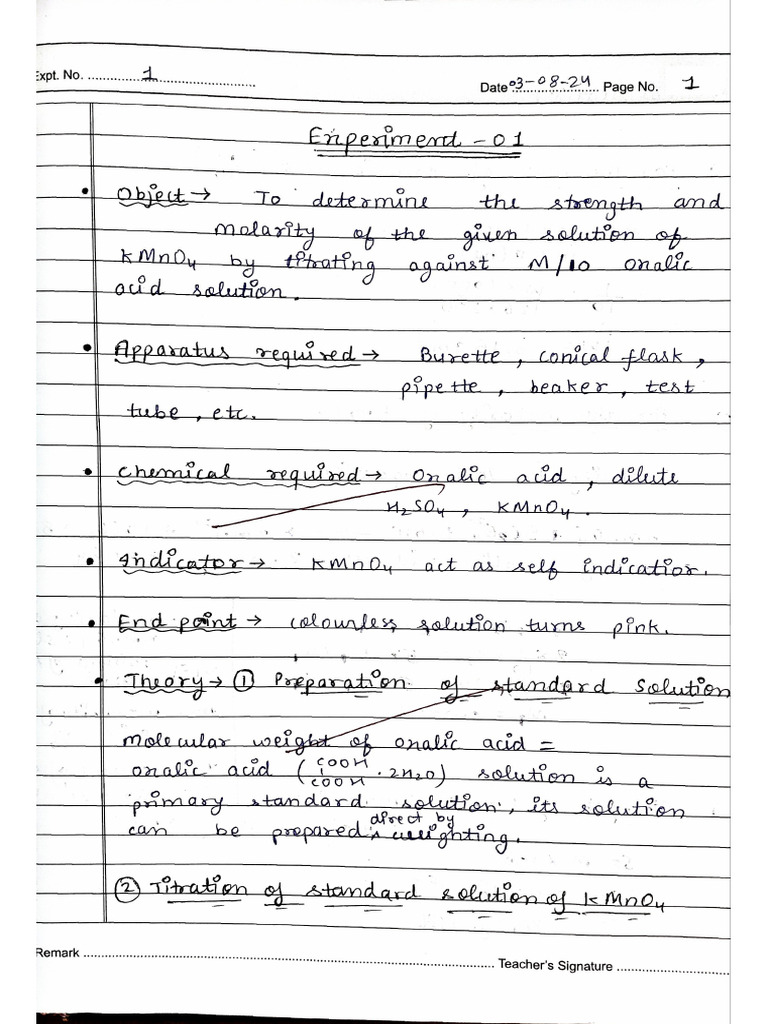 Expt. No. 1
Date 03-08-24 Page No. 1
Experiment - 01
• Object → To determine the strength and
molarity of the given solution of
KMnO₄ by titrating against M/10 oxalic
acid solution.
• Apparatus required → Burette, conical flask,
pipette, beaker, test
tube, etc.
• Chemical required → Oxalic acid, dilute
H₂SO₄, KMnO₄.
• Indicator → KMnO₄ act as self indicatior.
• End point → colourless solution turns pink.
• Theory → ① Preparation of standard Solution
Molecular weight of oxalic acid =
oxalic acid (COOH
COOH · 2H₂O) solution is a
primary standard solution, its solution
can be prepared direct by weighting.
② Titration of standard solution of KMnO₄
Remark
Teacher's Signature